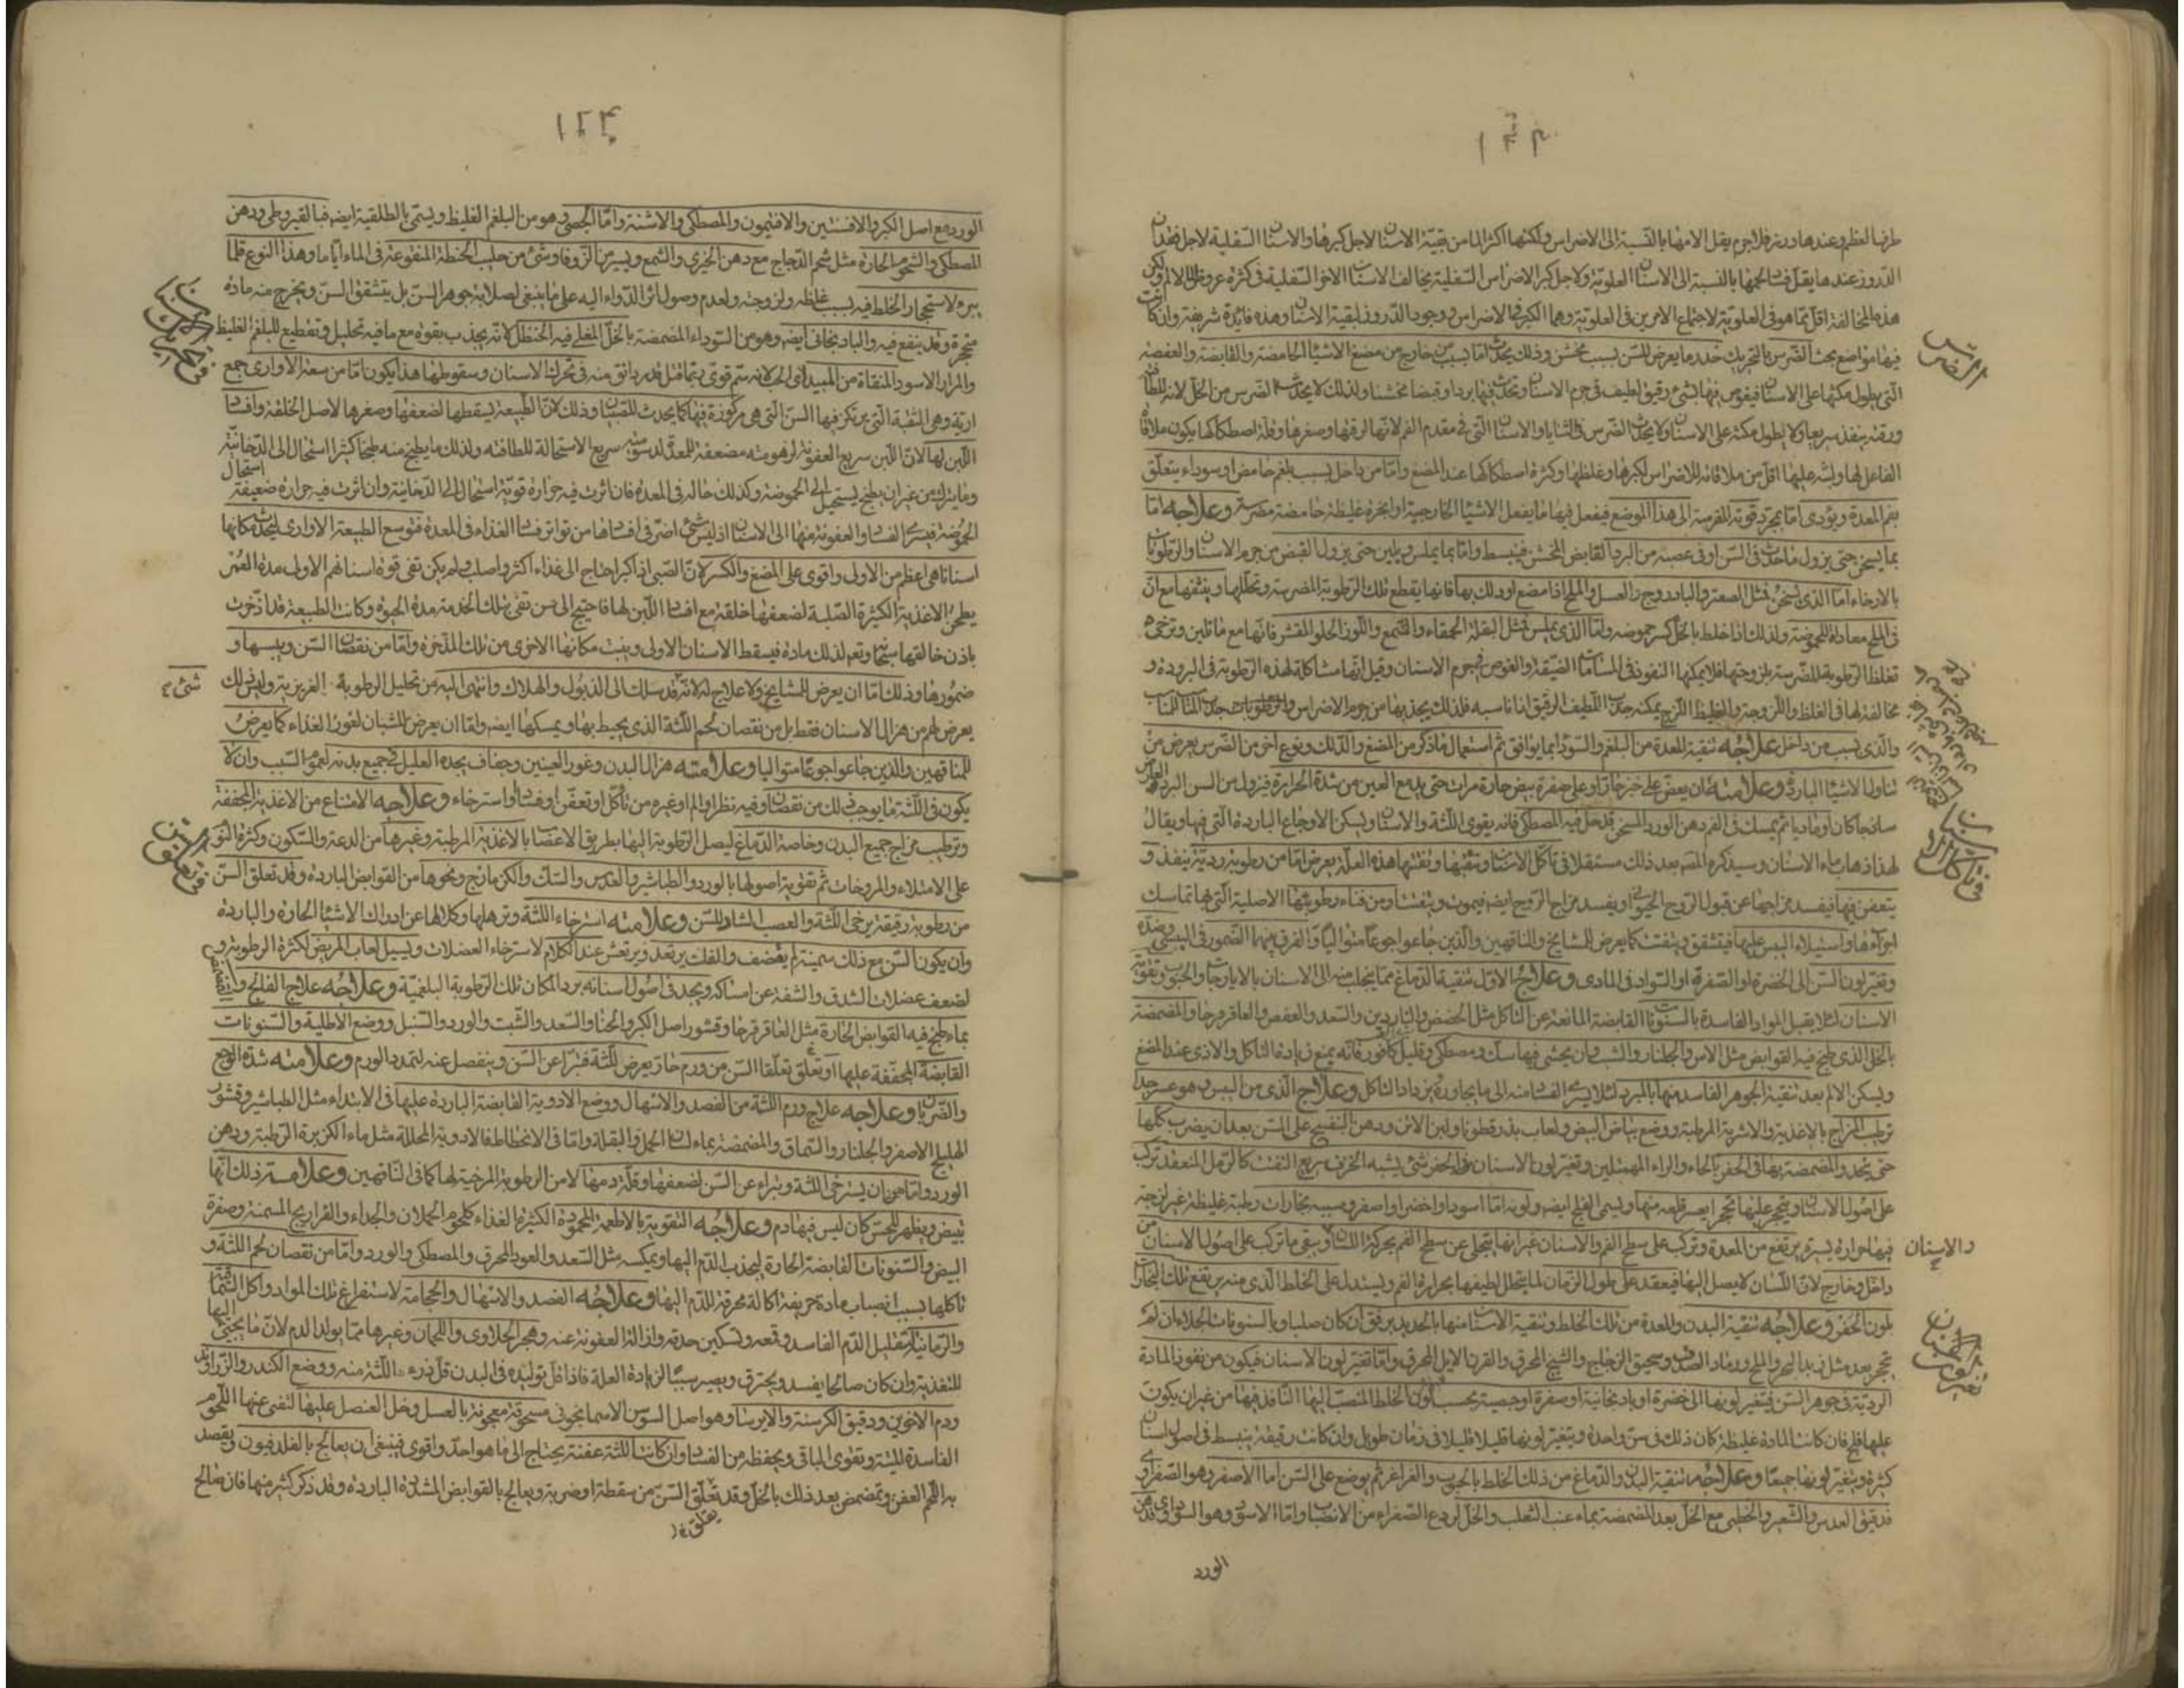 طرفها العظم وعندها دردز فلاجرم يقل الامها بالنسبة الى الاضراس ولكنها اكثر الما من بقية الاسنان لاجل كبرها والاسنان السفلية لاجل فقدان
الدروز عندها يقل
هذه المخالفة اقل مما هو فى العلوية لاجتماع الامرين فى العلوية وهما الكبر فى الاضراس ووجود الدروز لبقية الاسنان وهذه فائدة شريفة وان كانت
الضرس
فيها مواضع بحث الضرس بالتحريك خدر ما يعرض للسن بسبب مخشن وذلك يحدث اما بسبب من خارج من مضغ الاشياء الحامضة والقابضة والعفصة
التى يطول مكثها على الاسنان فيغوص فيها شئ رقيق لطيف فى جرم الاسنان ويحدث فيها بردا وقبضا مخشنا ولذلك لا يحدث الضرس من الخل لانه للطافة
ورقته ينفذ سريعا ولا يطول مكثه على الاسنان ولا يحدث الضرس فى الثنايا والاسنان التى فى مقدم الفم لانها لرقتها وصغرها وقلة اصطكاكها يكون ملاقاة
الفاعل لها ولبثه عليها اقل من ملاقاته للاضراس لكبرها وغلظها وكثرة اصطكاكها عند المضغ واما من داخل بسبب بلغم حامض او سوداء يتعلق
بفم المعدة ويؤدى اما بمجرد قوته المضرسة الى هذا الموضع فيفعل فيها ما يفعل الاشياء الخارجية او ابخرة غليظة حامضة مضرسة وعلاجه اما
بما يسخن حتى يزول ما حدث فى السن او فى عصبه من البرد القابض المخشن فينبسط واما بما يملس ويلين حتى يزول القبض من جرم الاسنان والرطوبات
بالارخاء اما الذى يسخن فمثل الصعتر والباذروج والعسل والملح اذا مضغ او دلك بها فانها يقطع تلك الرطوبة المضرسة وتحللها وينشفها مع ان
فى الملح معاداة للحموضة ولذلك اذا خلط بالخل كسر حموضته واما الذى يملس فمثل البقلة الحمقاء والشمع واللوز الحلو المقشر فانها مع ما تلين وترخى
تغلظ الرطوبة المضرسة بلزوجتها فلا يمكنها النفوذ فى المسامات الضيقة والغوص فى جرم الاسنان وقيل انها مشاكلة لهذه الرطوبة فى البرودة و
مخالفة لها فى الغلظ واللزوجة والغليظ اللزج يمكنه جذب اللطيف الرقيق اذا ناسبه فلذلك يجذبها من جرم الاضراس
والذى بسبب من داخل علاجه تنقية المعدة من البلغم والسوداء بما يوافق ثم استعمال ما ذكر من المضغ والدلك ونوع اخر من الضرس يعرض من
تناول الاشياء الباردة وعلامته ان يعض على خبز حار او على صفرة بيض حارة مرات حتى يدمع العين من شدة الحرارة فيزول من السن البرد العارض
ساذجا كان او ماديا ثم يمسك فى الفم دهن الورد المسخن قد حل فيه المصطكى فانه يقوى اللثة والاسنان ويسكن الاوجاع الباردة التى فيها ويقال
لهذا ذهاب ماء الاسنان وسيذكره المصنف بعد ذلك مستقلا فى تأكل الاسنان وتثقبها وتفتتها هذه العلة يعرض اما من رطوبة ردية ينفذ و
يتعفن فيها فيفسد مزاجها عن قبول الروح الحيوانى ويفسد مزاج الروح ايضا فيموت ويتفتت او من فناء رطوبتها الاصلية التى بها تماسك
اجزائها واستيلاء اليبس عليها فيتشقق ويتفتت كما يعرض للمشايخ والناقهين والذين جاعوا جوعا متواليا والفرق بينهما الضمور فى اليبسى وضده
وتغير لون السن الى الخضرة او الصفرة او السواد فى المادى وعلاج الاول تنقية الدماغ مما ينجلب منه الى الاسنان بالايارجات والحبوب وتقوية
الاسنان لئلا يقبل المواد الفاسدة بالسنونات القابضة المانعة عن التاكل مثل الحضض والناردين والسعد والعفص والعاقرقرحا والمضمضة
بالخل الذى طبخ فيه القوابض مثل الاس والجلنار والشب وان يحشى فيها سك ومصطكى وقليل كافور فانه يمنع من زيادة التاكل والاذى عند المضغ
ويسكن الالم بعد تنقية الجوهر الفاسد منها بالمبرد لئلا يسرى الفساد منه الى ما يجاوره فيزداد التاكل وعلاج الذى من اليبس وهو عسر جدا
ترطيب المزاج بالاغذية والاشربة المرطبة ووضع بياض البيض ولعاب بذر قطونا ولبن الاتن ودهن البنفسج على السن بعد ان يضرب كلها
حتى يتحد والمضمضة بها فى الحفر بالحاء والراء المهملتين وتغير لون الاسنان فى الحفر شئ يشبه الخزف سريع التفتت كالرمل المنعقد يتركب
على اصول الاسنان ويتحجر عليها تحجرا يعسر قلعه منها ويسمى القلح ايضا ولونه اما اسود او اخضر او اصفر وسببه بخارات رطبة غليظة غير لزجة
فيها حرارة يسيرة يرتفع من المعدة ويتركب على سطح الفم والاسنان غير انها ينجلى عن سطح الفم بحركة اللسان ويبقى ما تركب على اصول الاسنان من
والاسنان
داخل وخارج لان اللسان لا يصل اليها فيعقد على طول الزمان لما يتحلل لطيفها بحرارة الفم ويستدل على الخلط الذى منه يرتفع تلك البخارات
بلون الحفر وعلاجه تنقية البدن والمعدة من تلك الخلط وتنقية الاسنان منها بالحديد برفق ان كان صلبا وبالسنونات الجلاءة ان لم
يتحجر بعد مثل زبد البحر والملح ورماد الصدف وسحيق الزجاج والشيح المحرق والقرن الايل المحرق واما تغير لون الاسنان فيكون من نفوذ المادة
تغير لون الاسنان
الردية فى جوهر السن فيتغير لونها الى خضرة او باذنجانية او صفرة او جصية بحسب لون الخلط المنصب اليها النافذ فيها من غير ان يكون
عليها قلح فان كانت المادة غليظة كان ذلك فى سن واحدة ويتغير لونها قليلا قليلا فى زمان طويل وان كانت رقيقة ينبسط فى اصول اسنان
كثيرة ويتغير لونها جميعا وعلاجه تنقية البدن والدماغ من ذلك الخلط بالحبوب والغراغر ثم يوضع على السن اما الاصفر وهو الصفراوى
فدقيق العدس والشعير والخطمى مع الخل بعد المضمضة بماء عنب الثعلب والخل لردع الصفراء من الانصباب واما الاسود وهو السوداوى فدهن
الورد
الورد مع اصل الكبر والافسنتين والافتيمون والمصطكى والاشنة واما الجصى وهو من البلغم الغليظ ويسمى بالطلقية ايضا فبالقيروطى ودهن
المصطكى والشحوم الحارة مثل شحم الدجاج مع دهن الخيرى والشمع ويسير من الزوفا وشئ من حليب الحنطة المنقوعة فى الماء اياما وهذا النوع قلما
يبرء لاستحجار الخلط فيه بسبب غلظه ولزوجته ولعدم وصول اثر الدواء اليه على ما ينبغى لصلابة جوهر السن بل يتشقق السن ويخرج منه مادة
متحجرة وقد ينفع فيه والباذنجانى ايضا وهو من السوداء المضمضة بالخل المغلى فيه الحنظل لانه يجذب بقوة مع ما فيه تحليل وتقطيع للبلغم الغليظ
فى تحرك الاسنان
والمرار الاسود المنقاة من المبيد
ارية وهى الثقبة التى يرتكز فيها السن التى هى مركوزة فيها كما يحدث للصبيان وذلك لان الطبيعة يسقطها لضعفها وصغرها لاصل الخلقة وافساد
اللبن لها لان اللبن سريع العفونة
وما يترك من غير ان يطبخ يستحيل الى الحموضة وكذلك حاله فى المعدة فان اثرت فيه حرارة قوية استحال الى الدخانية وان اثرت فيه حرارة ضعيفة استحال
الحموضة فيسرى الفساد والعفونة منها الى الاسنان اذ ليس شئ اضر فى افسادها من تواتر فساد الغذاء فى المعدة فتوسع الطبيعة الاوارى ليحدث مكانها
اسنانا هى اعظم من الاولى واقوى على المضغ والكسر لان الصبى اذا كبر احتاج الى غذاء اكثر واصلب ولم يكن تفى قوة اسنانهم الاولى مدة العمر
بطحن الاغذية الكثيرة الصلبة لضعفها خلقة مع افساد اللبن لها فاحتيج الى سن تفى بتلك الخدمة مدة الحيوة وكانت الطبيعة قد ادخرت
باذن خالقها سبحانه وتعالى لذلك مادة فيسقط الاسنان الاولى وينبت مكانها الاخرى من تلك المدخرة واما من نقصان السن ويبسها و
ضمورها وذلك اما ان يعرض للمشايخ ولا علاج له لانه قد سلك الى الذبول والهلاك وانتهى اليه من تحليل الرطوبة الغريزية وليس ذلك
شئ
يعرض لهم من هزال الاسنان فقط بل من نقصان لحم اللثة الذى يحيط بها ويمسكها ايضا واما ان يعرض للشبان لعوز الغذاء كما يعرض
للناقهين والذين جاعوا جوعا متواليا وعلامته هزال البدن وغور العينين وجفاف يجده العليل فى جميع بدنه لعموم السبب وان لا
يكون فى اللثة ما يوجب ذلك من نقصان وفيه نظر او الم او غيره من تأكل او تعفن او فساد او استرخاء وعلاجه الامتناع من الاغذية المجففة
وترطيب مزاج جميع البدن وخاصة الدماغ ليصل الرطوبة اليها بطريق الاعصاب بالاغذية المرطبة وغيرها من الدعة والسكون وكثرة النوم
على الامتلاء والمروخات ثم تقوية اصولها بالورد والطباشير والعدس والسك والكزمازج ونحوها من القوابض الباردة وقد تعلق السن
من رطوبة رقيقة يرخى اللثة والعصب الشاد للسن وعلامته استرخاء اللثة وترهلها وكلالها عن ادراك الاشياء الحارة والباردة
وان يكون السن مع ذلك سمينة لم يقضف والفك يرتعد ويرتعش عند الكلام لاسترخاء العضلات ويسيل لعاب المريض لكثرة الرطوبة و
لضعف عضلات الشدق والشفة عن امساكه ويجد فى اصول اسنانه بردا لمكان تلك الرطوبة البلغمية وعلاجه علاج الفالج والمضمضة
بماء طبخ فيه القوابض الحارة مثل العاقرقرحا وقشور اصل الكبر والحنا والسعد والشبت والورد والسنبل ووضع الاطلية والسنونات
القابضة المجففة عليها او تعلق تعلقا السن من ورم حار يعرض للثة فتبرا عن السن وينفصل عنه لتمدد الورم وعلامته شدة الوجع
والضربان وعلاجه علاج ورم اللثة من الفصد والاسهال ووضع الادوية القابضة الباردة عليها فى الابتداء مثل الطباشير وقشور
الهليلج الاصفر والجلنار والسماق والمضمضة بماء لسان الحمل والبقلة واما فى الانحطاط فالادوية المحللة مثل ماء الكزبرة الرطبة ودهن
الورد واما من ان يسترخى اللثة ويتبراء عن السن لضعفها وقلة دمها لا من الرطوبة المرخية لها كما فى الناقهين وعلامة ذلك انها
تبيض ويظهر للحس كان ليس فيها دم وعلاجه التقوية بالاطعمة المحمودة الكثيرة الغذاء كلحوم الحملان والجداء والفراريج المسمنة وصفرة
البيض والسنونات القابضة الحارة ليجذب الدم اليها ويمسكه مثل السعد والعود المحرق والمصطكى والورد واما من نقصان لحم اللثة و
تاكلها بسبب انصباب مادة حريفة اكالة محرقة للدم اليها وعلاجه الفصد والاسهال والحجامة لاستفراغ تلك المواد واكل السماقية
والرمانية لتقليل الدم الفاسد وقمعه وتسكين حدته وازالة العفونة عنه وهجر الحلاوى واللحمان وغيرها مما يولد الدم لان ما يجئ اليها
للتغذية وان كان صالحا يفسد ويحترق ويصير سببا لزيادة العلة فاذا قل توليده فى البدن قل اللثة منه ووضع الكندر والزراوند
ودم الاخوين ودقيق الكرسنة والايرسا وهو اصل السوسن الاسمانجونى مسحوقة معجونة بالعسل وخل العنصل عليها لتفى عنها اللحوم
الفاسدة الميتة وتقوى الباقى ويحفظه من الفساد وان كانت اللثة عفنة يحتاج الى ما هو احد واقوى فينبغى ان يعالج بالفلدفيون ويقصد
به اللحم العفن ويتمضمض بعد ذلك بالخل وقد تعلق السن من سقطة او ضربة ويعالج بالقوابض المشددة الباردة وقد ذكر كثير منها فان صالح